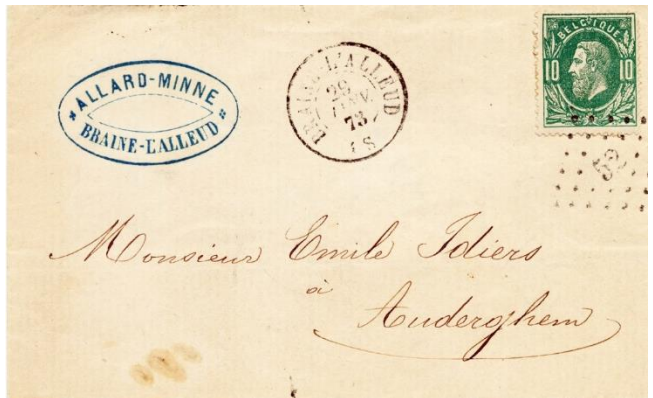 ALLARD-MINNE
BRAINE-L'ALLEUD
BRAINE-L'ALLEUD
JANV.
73
BELGIQUE
10 10
Monsieur Emile Idiers
à
Auderghem